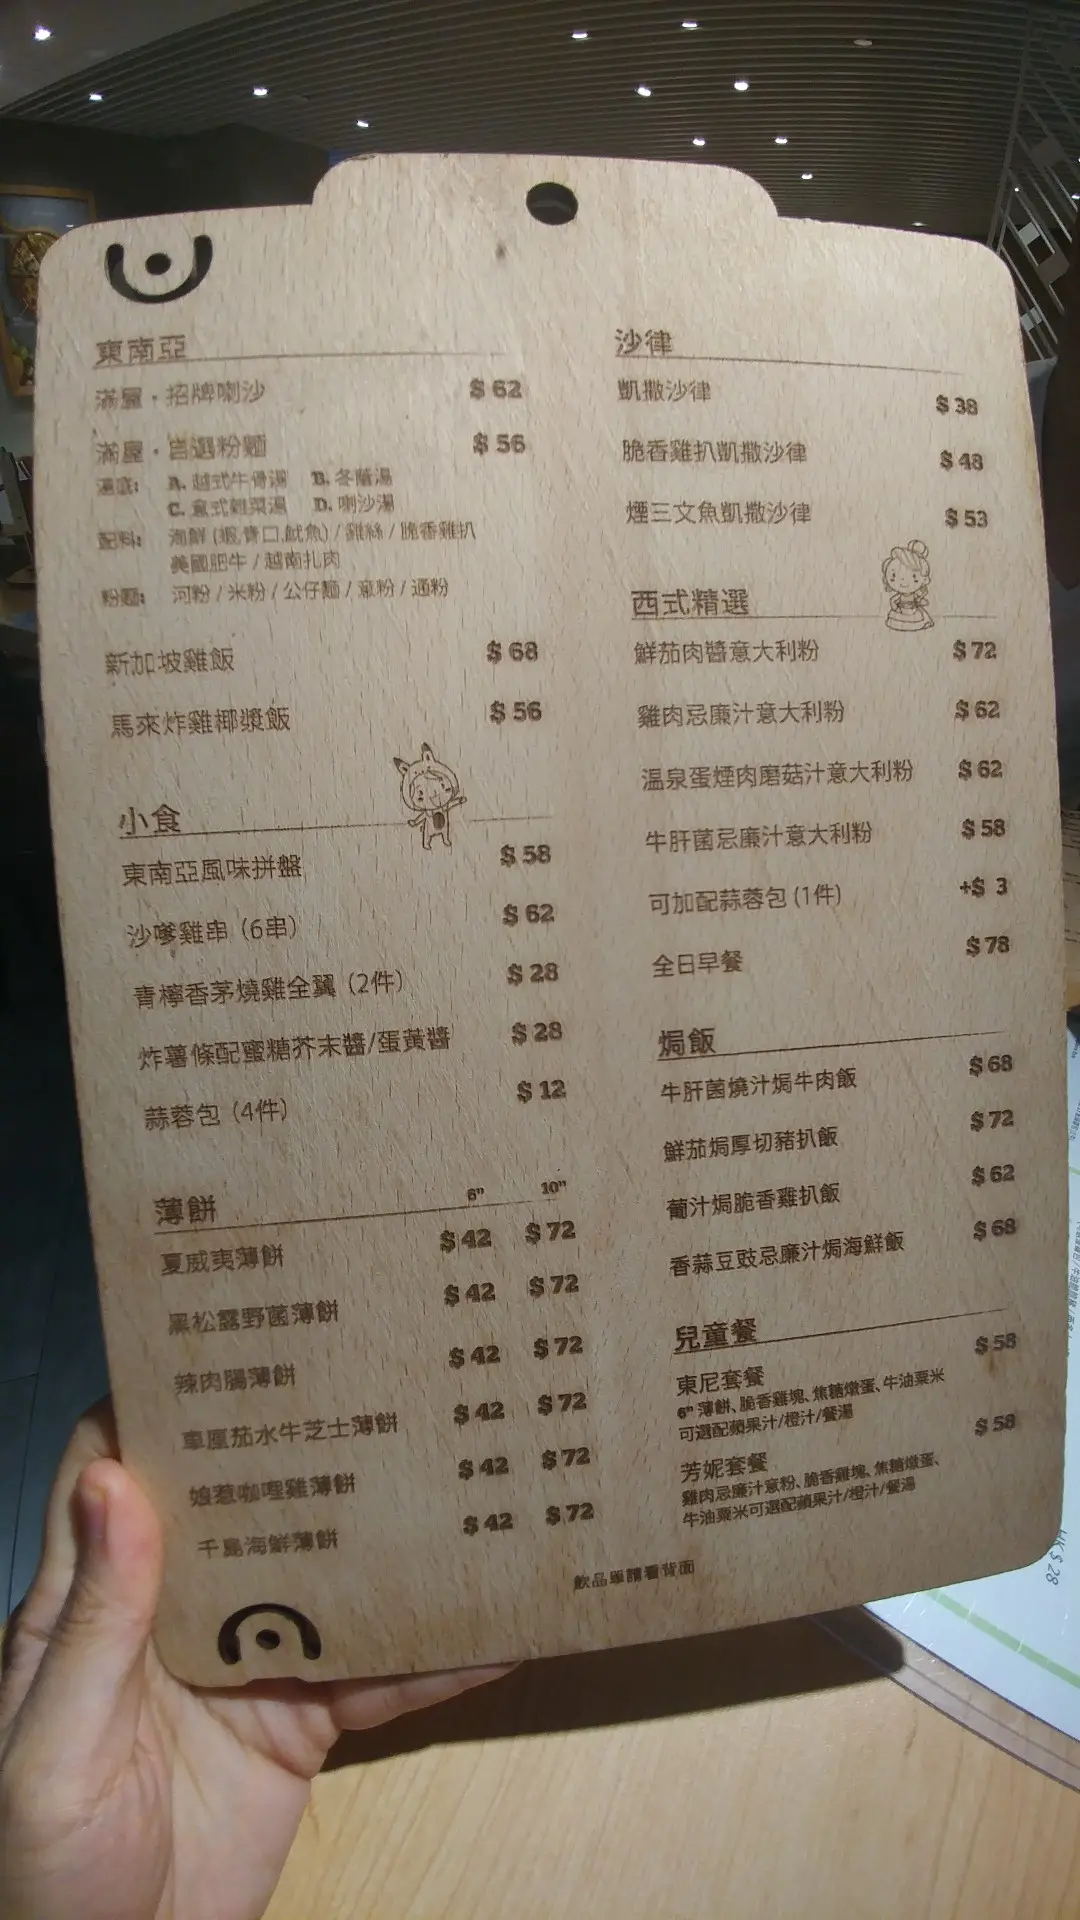 東南亞
滿屋・招牌喇沙 $62
滿屋・自選粉麵 $56
湯底: A. 越式牛骨湯 B. 冬蔭湯
C. 意式雜菜湯 D. 喇沙湯
配料: 海鮮(蝦,青口,魷魚)/雞絲/脆香雞扒
美國肥牛/越南扎肉
粉麵: 河粉/米粉/公仔麵/意粉/通粉
新加坡雞飯 $68
馬來炸雞椰漿飯 $56
小食
東南亞風味拼盤 $58
沙嗲雞串 (6串) $62
青檸香茅燒雞全翼 (2件) $28
炸薯條配蜜糖芥末醬/蛋黃醬 $28
蒜蓉包 (4件) $12
薄餅 6" 10"
夏威夷薄餅 $42 $72
黑松露野菌薄餅 $42 $72
辣肉腸薄餅 $42 $72
車厘茄水牛芝士薄餅 $42 $72
娘惹咖哩雞薄餅 $42 $72
千島海鮮薄餅 $42 $72
沙律
凱撒沙律 $38
脆香雞扒凱撒沙律 $48
煙三文魚凱撒沙律 $53
西式精選
鮮茄肉醬意大利粉 $72
雞肉忌廉汁意大利粉 $62
温泉蛋煙肉磨菇汁意大利粉 $62
牛肝菌忌廉汁意大利粉 $58
可加配蒜蓉包(1件) +$ 3
全日早餐 $78
焗飯
牛肝菌燒汁焗牛肉飯 $68
鮮茄焗厚切豬扒飯 $72
葡汁焗脆香雞扒飯 $62
香蒜豆豉忌廉汁焗海鮮飯 $68
兒童餐
東尼套餐 $58
6" 薄餅、脆香雞塊、焦糖燉蛋、牛油粟米
可選配蘋果汁/橙汁/餐湯
芳妮套餐 $58
雞肉忌廉汁意粉、脆香雞塊、焦糖燉蛋、
牛油粟米可選配蘋果汁/橙汁/餐湯
飲品單請看背面
HK$28